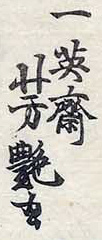 一英齋芳艶画